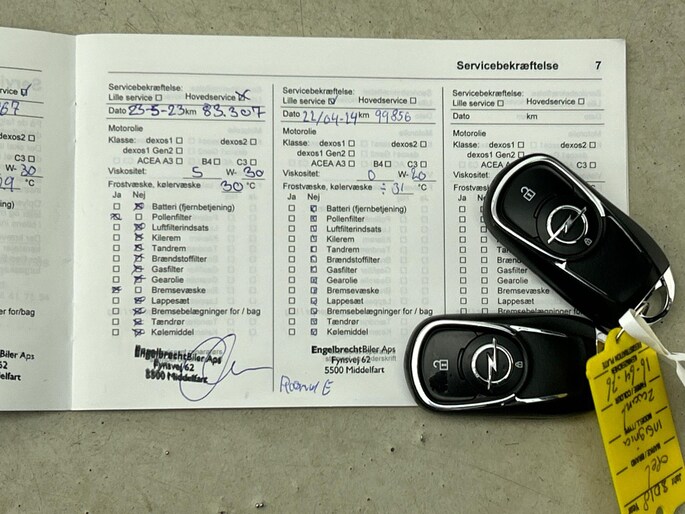 Servicebekræftelse 7
Servicebekræftelse:
Lille service Hovedservice
Dato 23-5-23 km 83.307
Motorolie
Klasse: dexos1 dexos2
dexos1 Gen2
ACEA A3 B4 C3
Viskositet: 5 W- 30
Frostvæske, kølervæske 30 °C
Ja Nej
Batteri (fjernbetjening)
Pollenfilter
Luftfilterindsats
Kilerem
Tandrem
Brændstoffilter
Gasfilter
Gearolie
Bremsevæske
Lappesæt
Bremsebelægninger for / bag
Tændrør
Kølemiddel
EngelbrechtBiler Aps
Fynsvej 62
5500 Middelfart
Servicebekræftelse:
Lille service Hovedservice
Dato 22/04-24 km 99856
Motorolie
Klasse: dexos1 dexos2
dexos1 Gen2
ACEA A3 B4 C3
Viskositet: 0 W- 20
Frostvæske, kølervæske ÷ 31 °C
Ja Nej
Batteri (fjernbetjening)
Pollenfilter
Luftfilterindsats
Kilerem
Tandrem
Brændstoffilter
Gasfilter
Gearolie
Bremsevæske
Lappesæt
Bremsebelægninger for / bag
Tændrør
Kølemiddel
EngelbrechtBiler Aps
Fynsvej 62
5500 Middelfart
Servicebekræftelse:
Lille service Hovedservice
Dato km
Motorolie
Klasse: dexos1
dexos1 Gen2
ACEA A3
Viskositet:
Frostvæske, kølerv
Ja Nej
Batteri (fjer
Pollenfilter
Luftfilterinds
Kilerem
Tandrem
Brændstoffilter
Gasfilter
Gearolie
Bremsevæske
Lappesæt
Insignia
Opel
2018